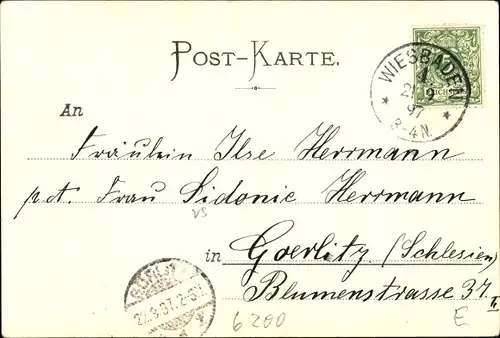 POST-KARTE.
WIESBADEN
1
21 9
97
3-4N.
An
Fräulein Ilse Herrmann
p.A. Frau Sidonie Herrmann
in Goerlitz (Schlesien)
Blumenstrasse 37. II
6200
E